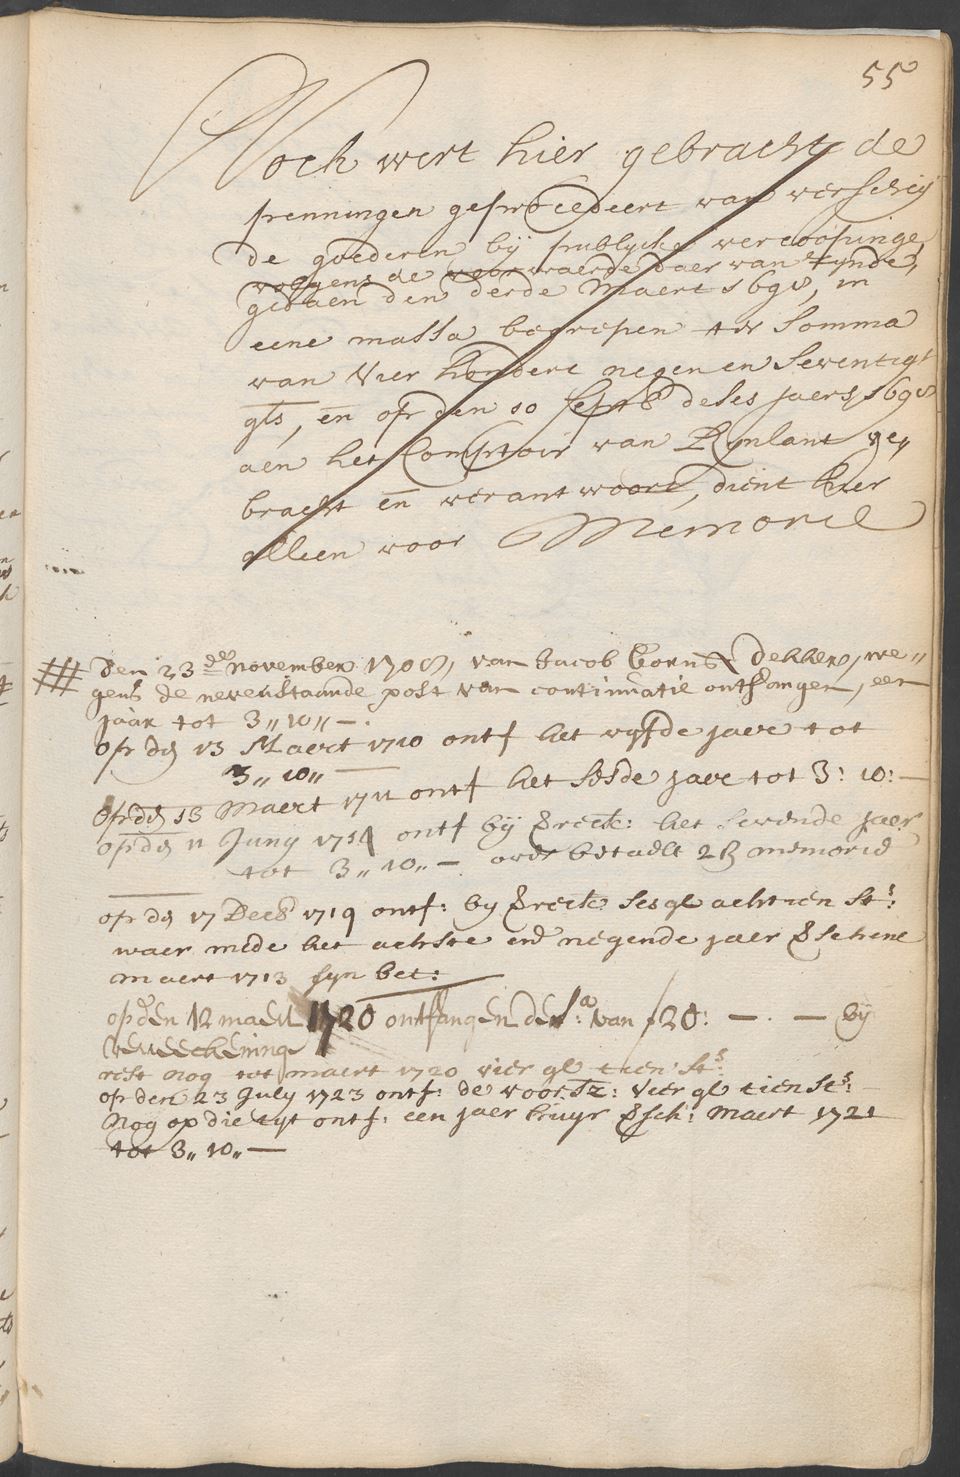 55
Noch wert hier gebracht de
penningen geprocedeert van verscheij
de goederen bij publijcke vercoopinge,
volgens de voorwaerde daer van zijnde,
gedaen den derde Maert 1698, in
eene massa begrepen ter somma
van Vier hondert negen en seventigh
gls, en op den 10 Sept8 deses jaers 1698
aen het Comptoir van Rynlant ge„
bracht en verantwoort, dient hier
alleen voor Memorie
Den 23 de november 1708, van Jacob Corns Dekker, we„
gens de nevenstaande post van continuatie ontfangen, een
jaar tot 3„10„—.
op dn 13 Maert 1710 ontf het vyfde jaer tot
3„10„—
op dn 13 Maert 1711 ontf het sesde jaer tot 3:10:—
op dn 11 Juny 1714 ontf bij Reeck: het sevende jaer
tot 3„10„— memorie
op dn 17 Dec8 1719 ontf: by Reeck: ses gl achtien sts:
waer mede het achste end negende jaer schene
maert 1713 syn bet:
op den 12 maert 1720 ontfangen de sa: van f 20: —.— bij
Reeckeninge
rest nog tot maert 1720 vier gl tien sts:
op den 23 July 1723 ontf: de voorsz: vier gl tien sts:
Nog op die tyt ontf: een jaer huyr sch: maert 1721
tot 3„10„—